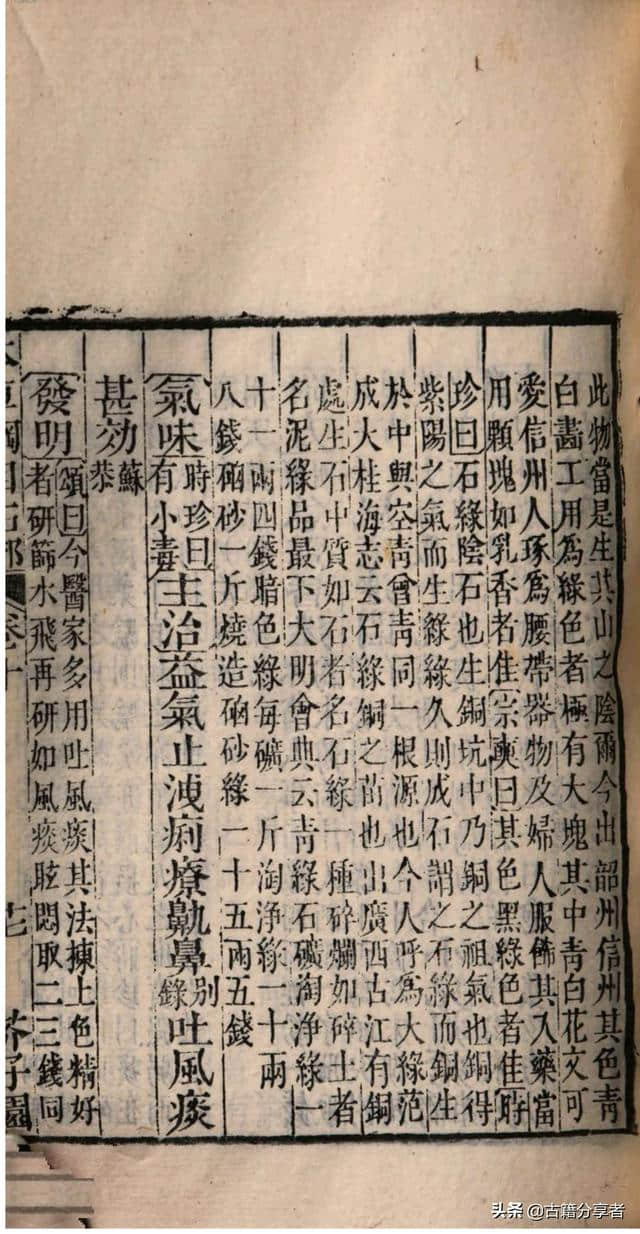 此物當是生其山之陰爾今出韶州信州其色青
白畵工用爲綠色者極有大塊其中青白花文可
愛信州人琢爲腰帶器物及婦人服飾其入藥當
用顆塊如乳香者佳宗奭曰其色黑綠色者佳時
珍曰石綠陰石也生銅坑中乃銅之祖氣也銅得
紫陽之氣而生綠綠久則成石謂之石綠而銅生
於中與空青曾青同一根源也今人呼爲大綠范
成大桂海志云石綠銅之苗也出廣西古江有銅
處生石中質如石者名石綠一種碎爛如碎土者
名泥綠品最下大明會典云青綠石礦淘淨綠一
十一兩四錢暗色綠每礦一斤淘淨綠一十兩
八錢硇砂一斤燒造硇砂綠一十五兩五錢
氣味時珍曰有小毒主治益氣止洩痢療鼽鼻別錄吐風痰
甚効蘇恭
發明頌曰今醫家多用吐風痰其法揀上色精好
者研篩水飛再研如風痰眩悶取二三錢同
本草綱目石部 卷十 芥子園
头条 @古籍分享者